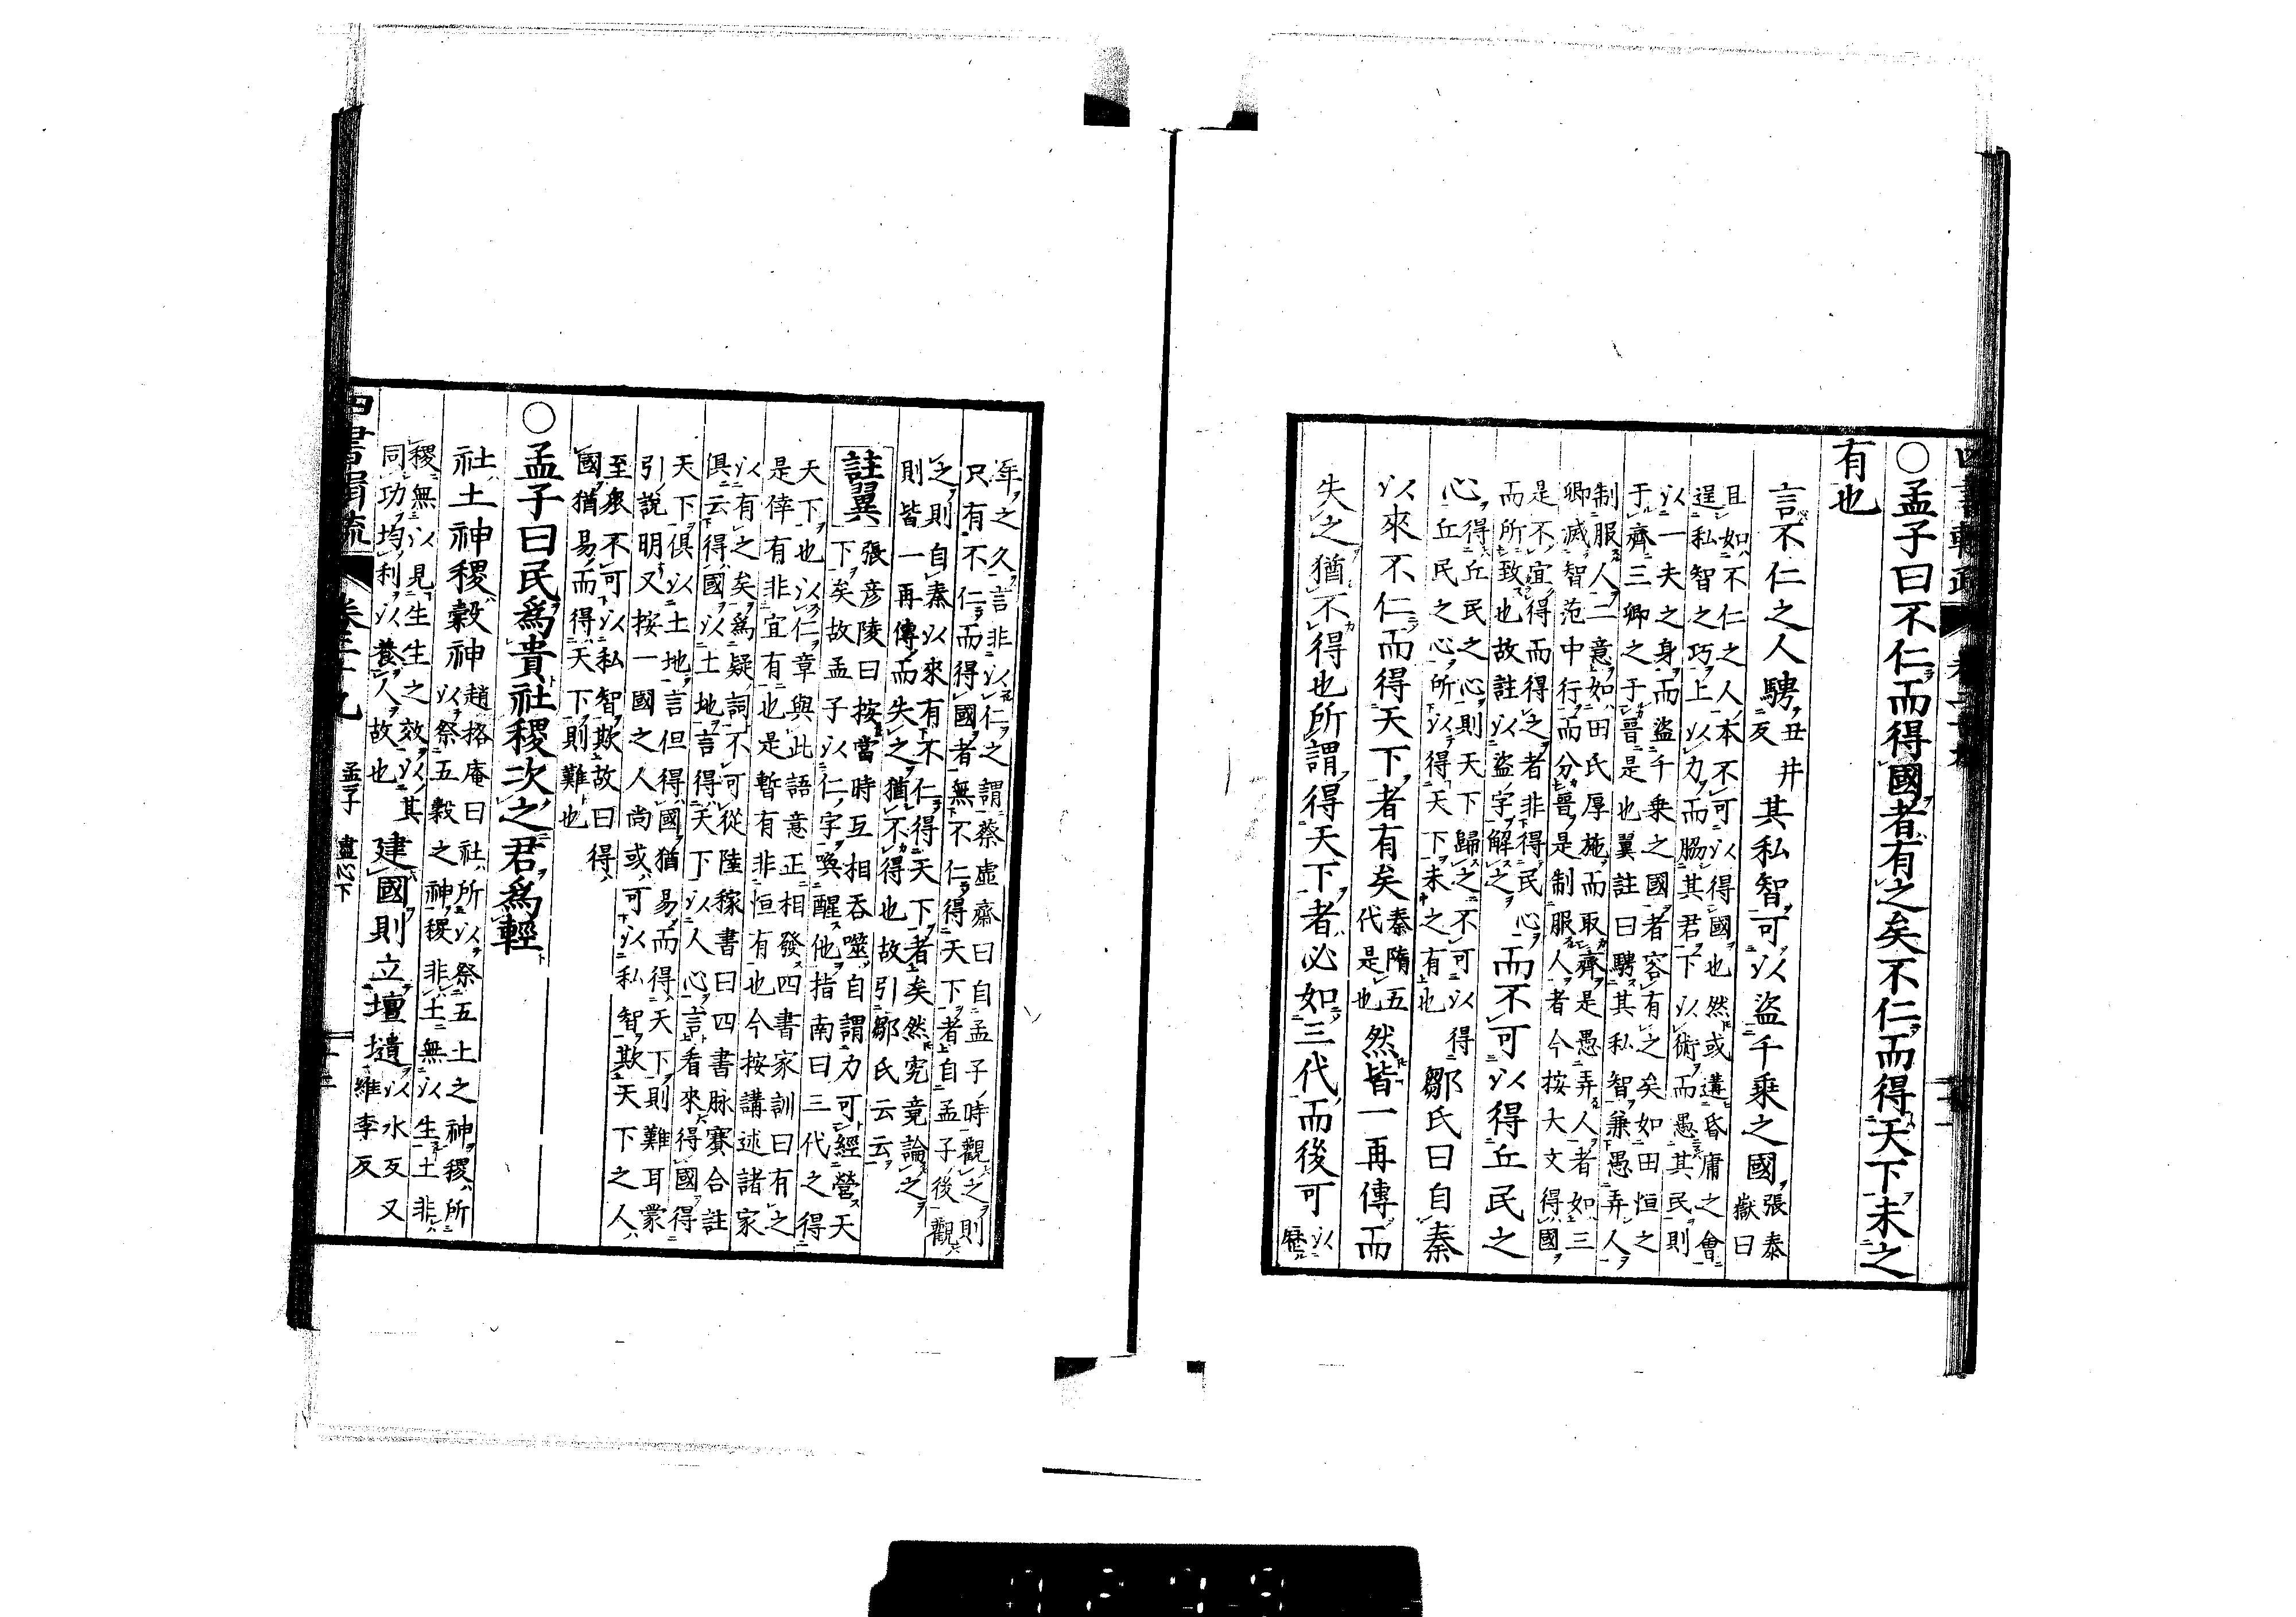 ○孟子曰不仁而得國者有之矣不仁而得天下未之
有也
言不仁之人騁丑井反其私智可以盜千乘之國張泰嶽曰
且如不仁之人本不可以得國也然或遘昏庸之會
逞私智之巧上以力而脇其君下以術而愚其民則
以一夫之身而盜千乘之國者容有之矣如田恒之
于齊三卿之于晉是也翼註曰騁其私智兼愚弄人
制服人二意如田氏厚施而取齊是愚弄人者如三
卿滅智范中行而分晉是制服人者今按大文得國
是不宜得而得之者非得民心
而所致也故註以盜字解之
而不可以得丘民之
心得丘民之心則天下歸之不可以得
丘民之心所以得天下未之有也
鄒氏曰自秦
以來不仁而得天下者有矣秦隋五代是也然皆一再傳而
失之猶不得也所謂得天下者必如三代而後可以歷
年之久言非以仁之謂蔡虛齋曰自孟子時觀之則
只有不仁而得國者無不仁得天下者自孟子後觀
之則自秦以來有不仁得天下者矣然究竟論之
則皆一再傳而失之猶不得也故引鄒氏云云
註翼
張彦陵曰按當時互相吞噬自謂力可經營天
下矣故孟子以仁字喚醒他指南曰三代之得
天下也以仁章與此語意正相發四書家訓曰有之
是倖有非宜有也是暫有非恒有也今按講述諸家
以有之矣爲疑詞不可從陸稼書曰四書脉賽合註
俱云得國以土地言得天下以人心言看來得國得
天下俱以土地言但得國猶易而得天下則難耳蒙
引說明又按一國之人尚或可以私智欺天下之人
至衆不可以私智欺故曰得
國猶易而得天下則難也
○孟子曰民爲貴社稷次之君爲輕
社土神稷穀神趙格庵曰社所以祭五土之神稷所
以祭五穀之神稷非土無以生土非
稷無以見生生之效以其
同功均利以養人故也
建國則立壇壝以水反又維李反
四書 卷三十九 孟子 盡心下